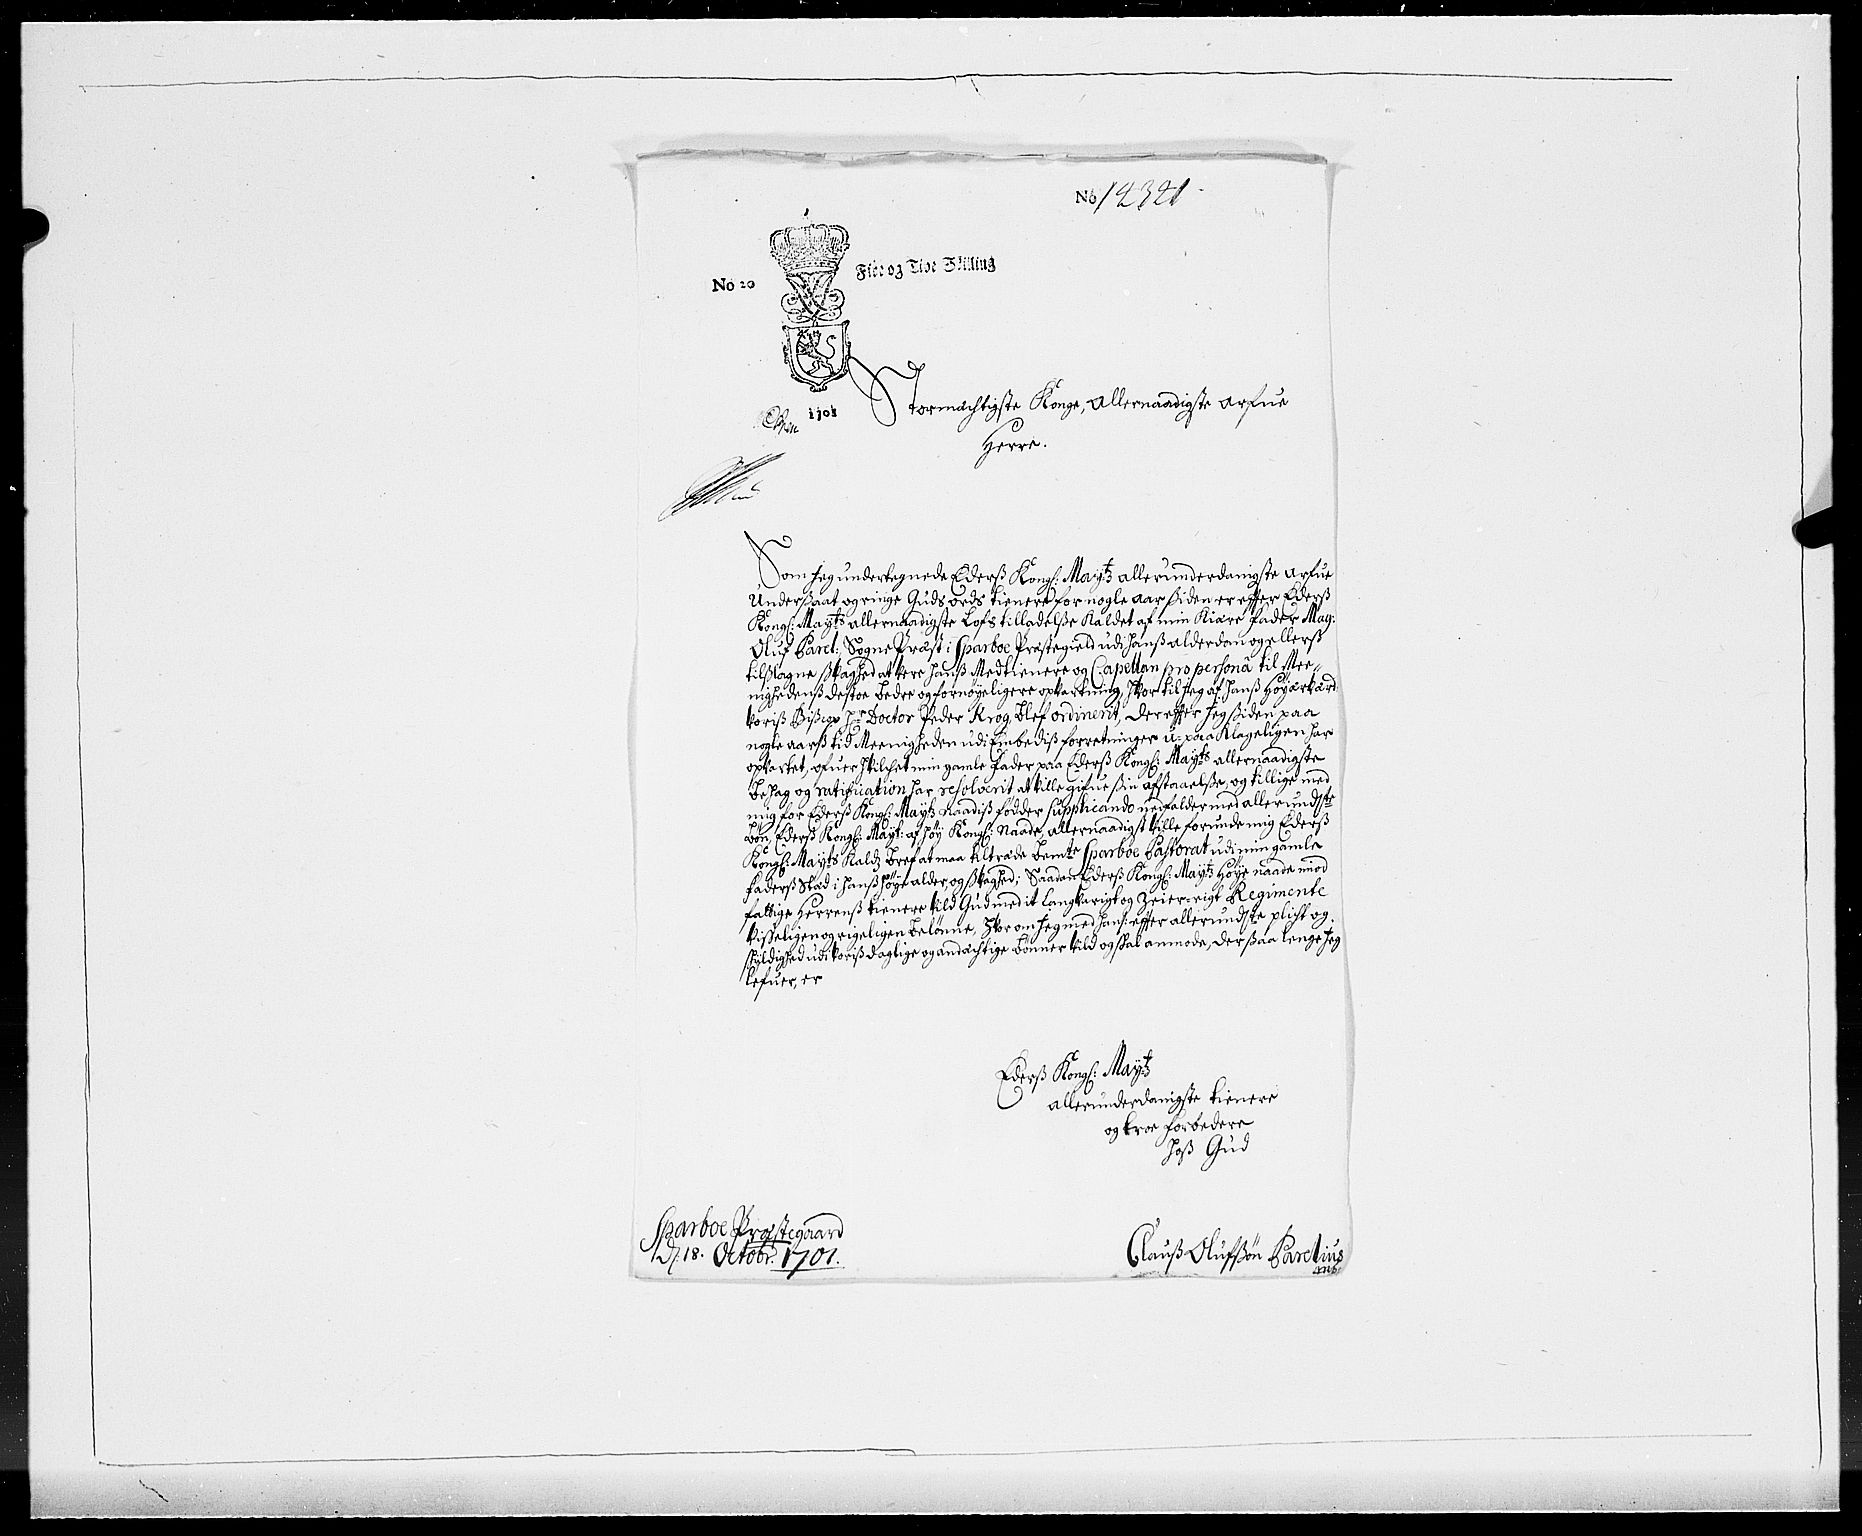 No 12321
No 20 Fire og Tive Skilling
1701
Stormächtigste Konge, Allernaadigste Arfue
Herre.
Som Jeg undertegnede Ederß Kongl: Mayts allerunderdanigste Arfue
Underßaat og ringe Guds ords tienere for nogle aar siden er effter Ederß
Kongl: Mayts allernaadigste Lofs tilladelße kaldet af min Kiäre fader Mag:
Oluf Paret:, Sogne Präst i Sparboe Præstegield udi hanß alderdom og ellerß
tilßlagne ßvaghed at vere hanß Medtienere og Capellan pro persona til Mee-
nighedenß destoe bedre og fornøyeligere opvartning, hvortil Jeg af hanß Høyærværd:
voriß Bißcop Hr Doctor Peder Krog blef ordinerit, der effter Jeg ßiden paa
nogle aarß tid Meenigheden udi Embediß forretninger u-paaklageligen har
opvartet, ofuer hvilchet min gamle fader paa Ederß Kongl: Mayts allernaadigste
behag og ratification har resolverit at ville gifue ßin afstaaelße, og tillige med
mig for Ederß Kongl: Mayts naadiß fødder supplicando nedfalder med allerundste
bøn, Ederß Kongl: Mayt: af høy Kongl: Naade, allernaadigst ville forunde mig Ederß
Kongl: Mayts Kaldz bref at maa tiltræde bemte Sparboe Pastorat udi min gamle
faderß Stæd i hanß høye alder, og ßvaghed; Saadan Ederß Kongl: Mayts Høye naade mod
fattige Herrenß tienere vild Gud med it langvarigt og Zeier-rigt Regimente
visseligen og rigeligen belønne, hvorom Jeg med hanß effter allerundste plicht og
skyldighed udi voriß daglige og andächtige bønner vild og skal anmode, der ßaa lenge Jeg
lefuer, er
Ederß Kongl: Mayts
allerunderdanigste tienere
og troe forbedere
hoß Gud
Sparboe Præstegaard
d. 18. Octobr. 1701.
Clauß Olufßøn Paretius